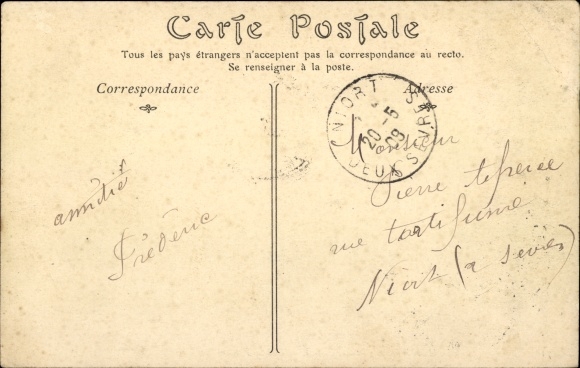 Carte Postale
Tous les pays étrangers n'acceptent pas la correspondance au recto.
Se renseigner à la poste.
Correspondance
Adresse
NIORT
20 - 5
09
DEUX SÈVRES
amitiés
Frédéric
Monsieur
Pierre
rue
Niort (2 sevres)